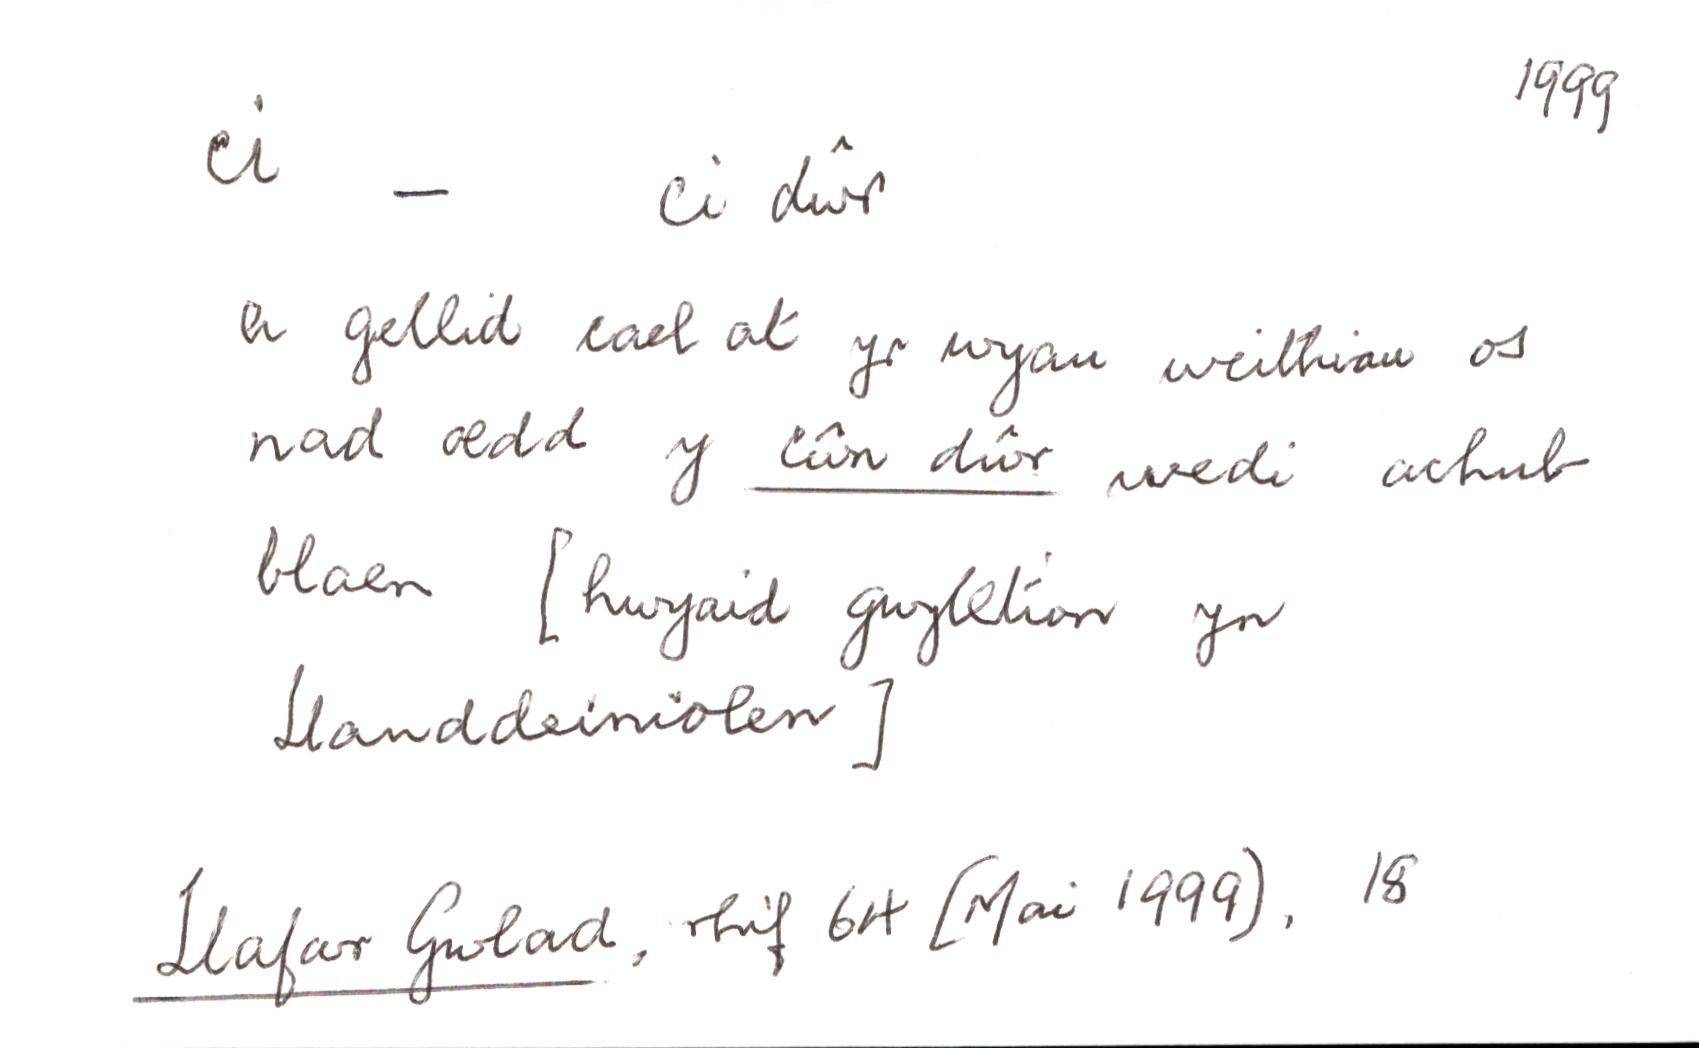 1999
ci – ci dŵr
a gellid cael at yr wyau weithiau os
nad oedd y cŵn dŵr wedi achub
blaen [hwyaid gwylltion yn
Llanddeiniolen]
Llafar Gwlad, rhif 64 (Mai 1999), 18